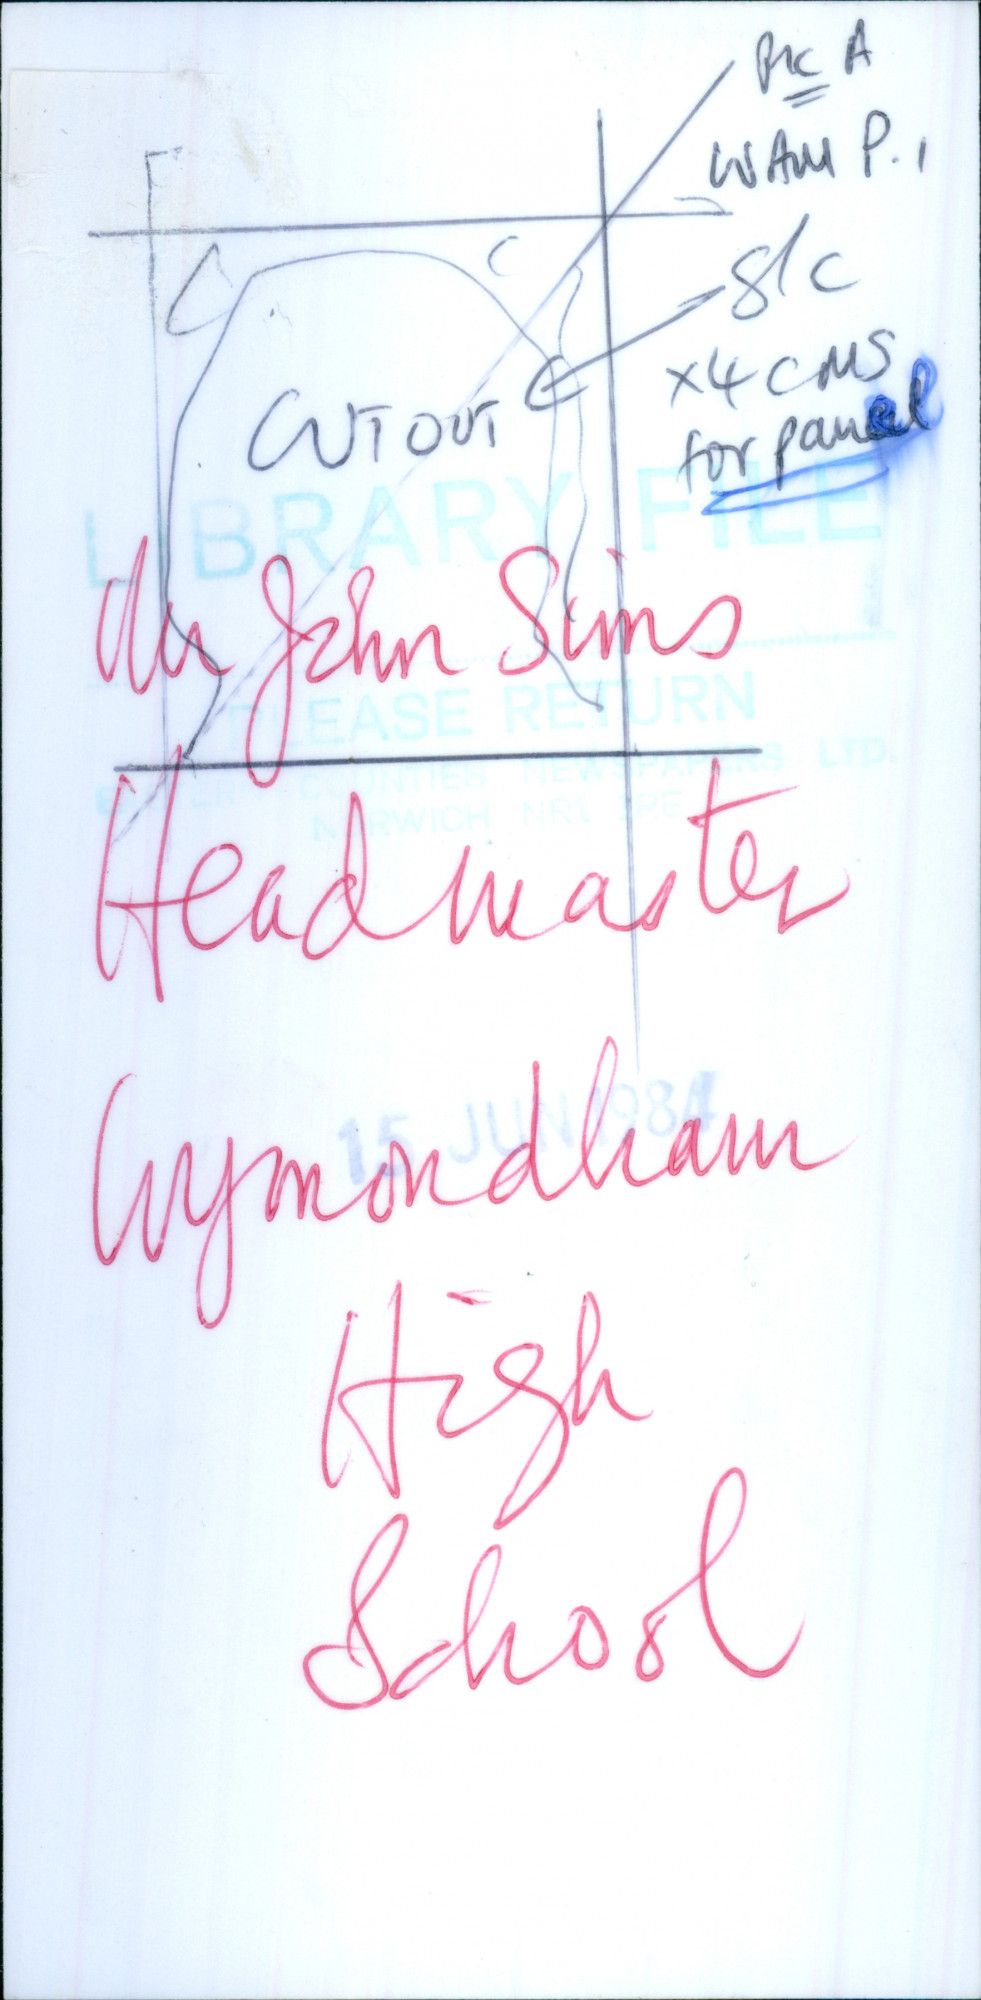 Pic A
WAM P.1
S/C
x4 CMS
for panel
CUT OUT
LIBRARY FILE
Mr John Sims
PLEASE RETURN
EASTERN COUNTIES NEWSPAPERS LTD.
NORWICH NR1 1RE
Headmaster
15 JUN 1984
Wymondham
High
School